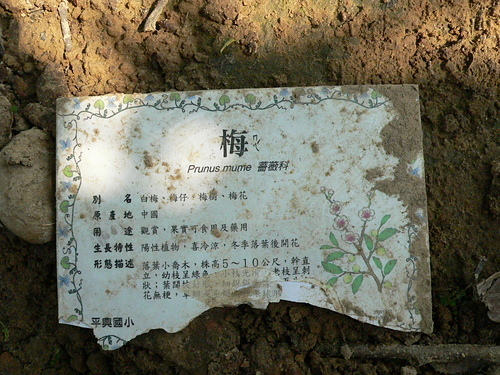 梅
Prunus mume 薔薇科
別名 白梅、梅仔、梅樹、梅花
原產地 中國
用途 觀賞，果實可食用及藥用
生長特性 陽性植物，喜冷涼，冬季落葉後開花
形態描述 落葉小喬木，株高5~10公尺，幹直
立，幼枝呈綠色，小枝光滑，老枝呈刺
狀；葉
花無梗，
平興國小